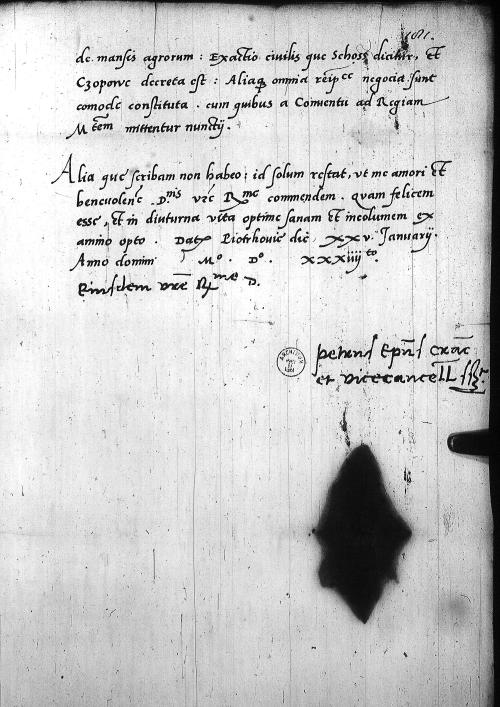 1681.
de mansis agrorum : Exactio ciuilis que Schoss dicitur, Et
Czopowe decreta est : Aliaq omnia reip ce negocia sunt
comode constituta . cum quibus a Conuentu ad Regiam
M tem mittentur nuncij .
Alia que scribam non habeo : id solum restat, vt me amori Et
beneuolenc . D nis vrē R me commendem . quam felicem
esse , Et in diuturna vita optime sanam Et incolumem ex
animo opto . Dat Piotrhouie die XXV . Januarij .
Anno domini M o . D o . XXXiiij to .
Eiusdem vrē R me D .
ARCHIVUM
petrus Epūs crac
et vicecancell